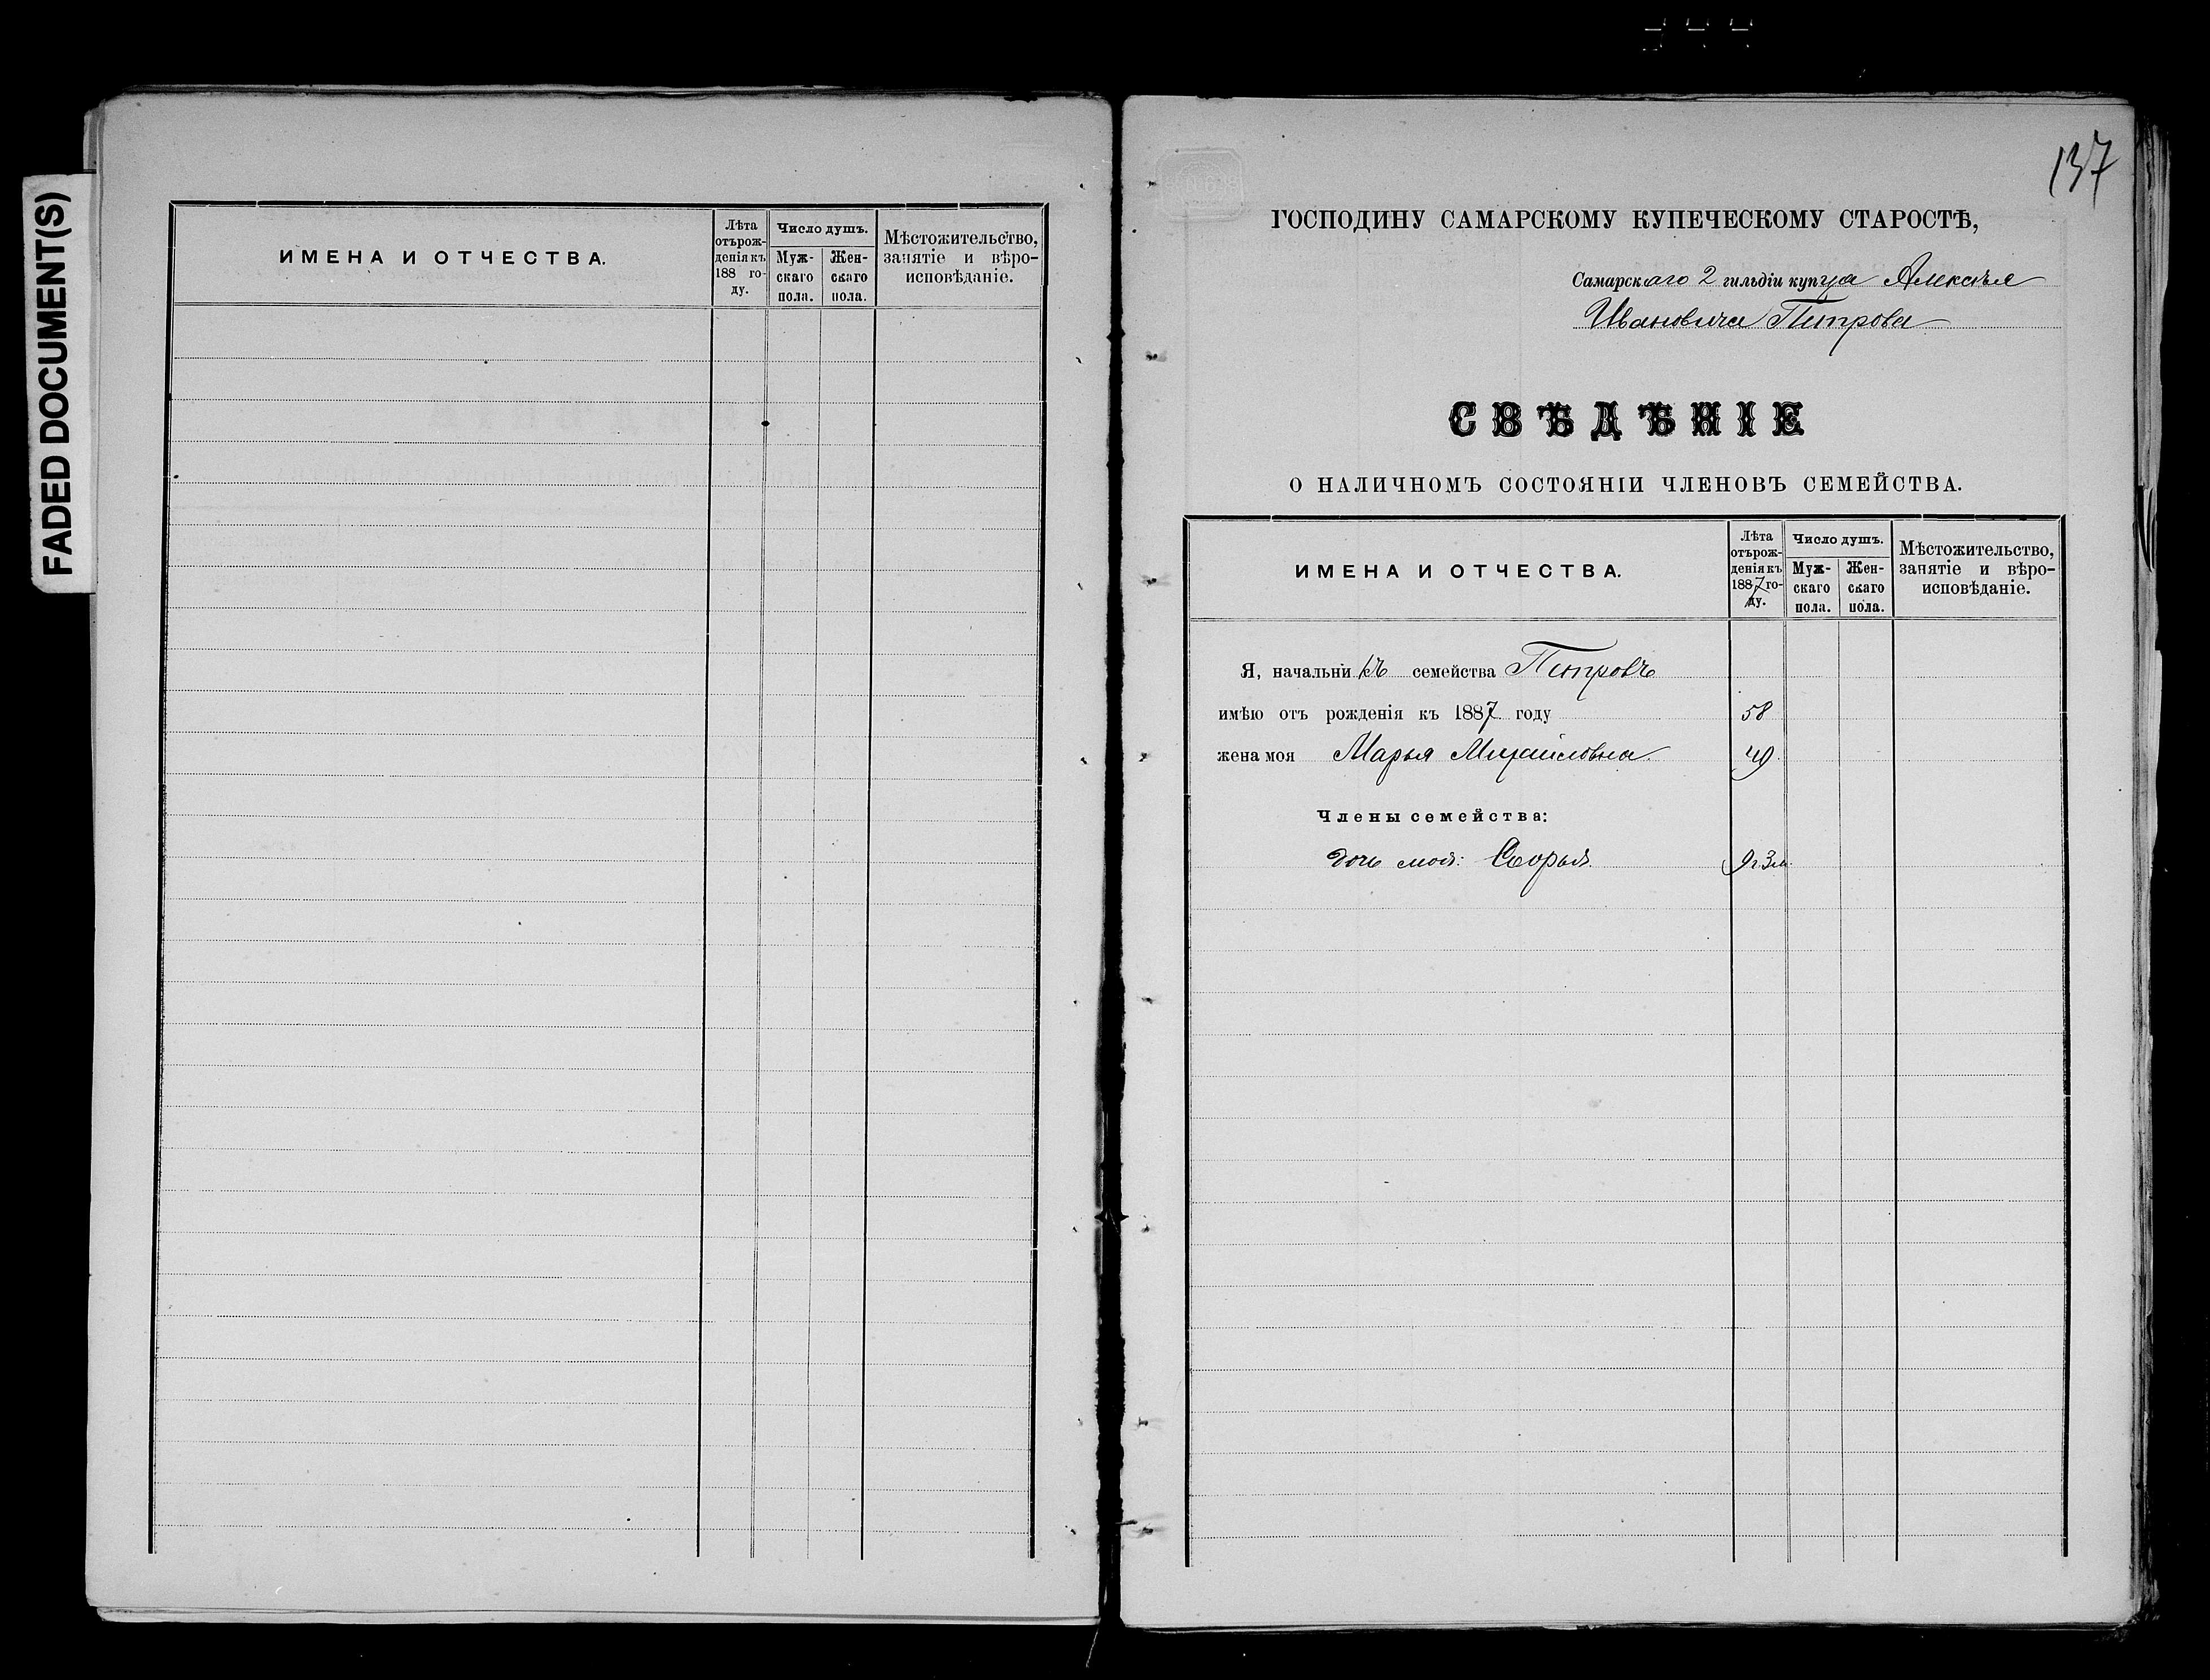 FADED DOCUMENT(S)
ИМЕНА И ОТЧЕСТВА.
Лѣта
отърож-
денія къ
188 го-
ду.
Число душъ.
Муж-
скаго
пола.
Жен-
скаго
пола.
Мѣстожительство,
занятіе и вѣро-
исповѣданіе.
137
ГОСПОДИНУ САМАРСКОМУ КУПЕЧЕСКОМУ СТАРОСТѢ,
Самарскаго 2 гильдіи купца Алексѣя
Ивановича Петрова
СВѢДѢНІЕ
О НАЛИЧНОМЪ СОСТОЯНІИ ЧЛЕНОВЪ СЕМЕЙСТВА.
ИМЕНА И ОТЧЕСТВА.
Лѣта
отърож-
денія къ
1887 го-
ду.
Число душъ.
Муж-
скаго
пола.
Жен-
скаго
пола.
Мѣстожительство,
занятіе и вѣро-
исповѣданіе.
Я, начальникъ семейства Петровъ
имѣю отъ рожденія къ 1887 году 58
жена моя Марья Михайловна 49
Члены семейства:
дочь моя: Софья 9г.3м